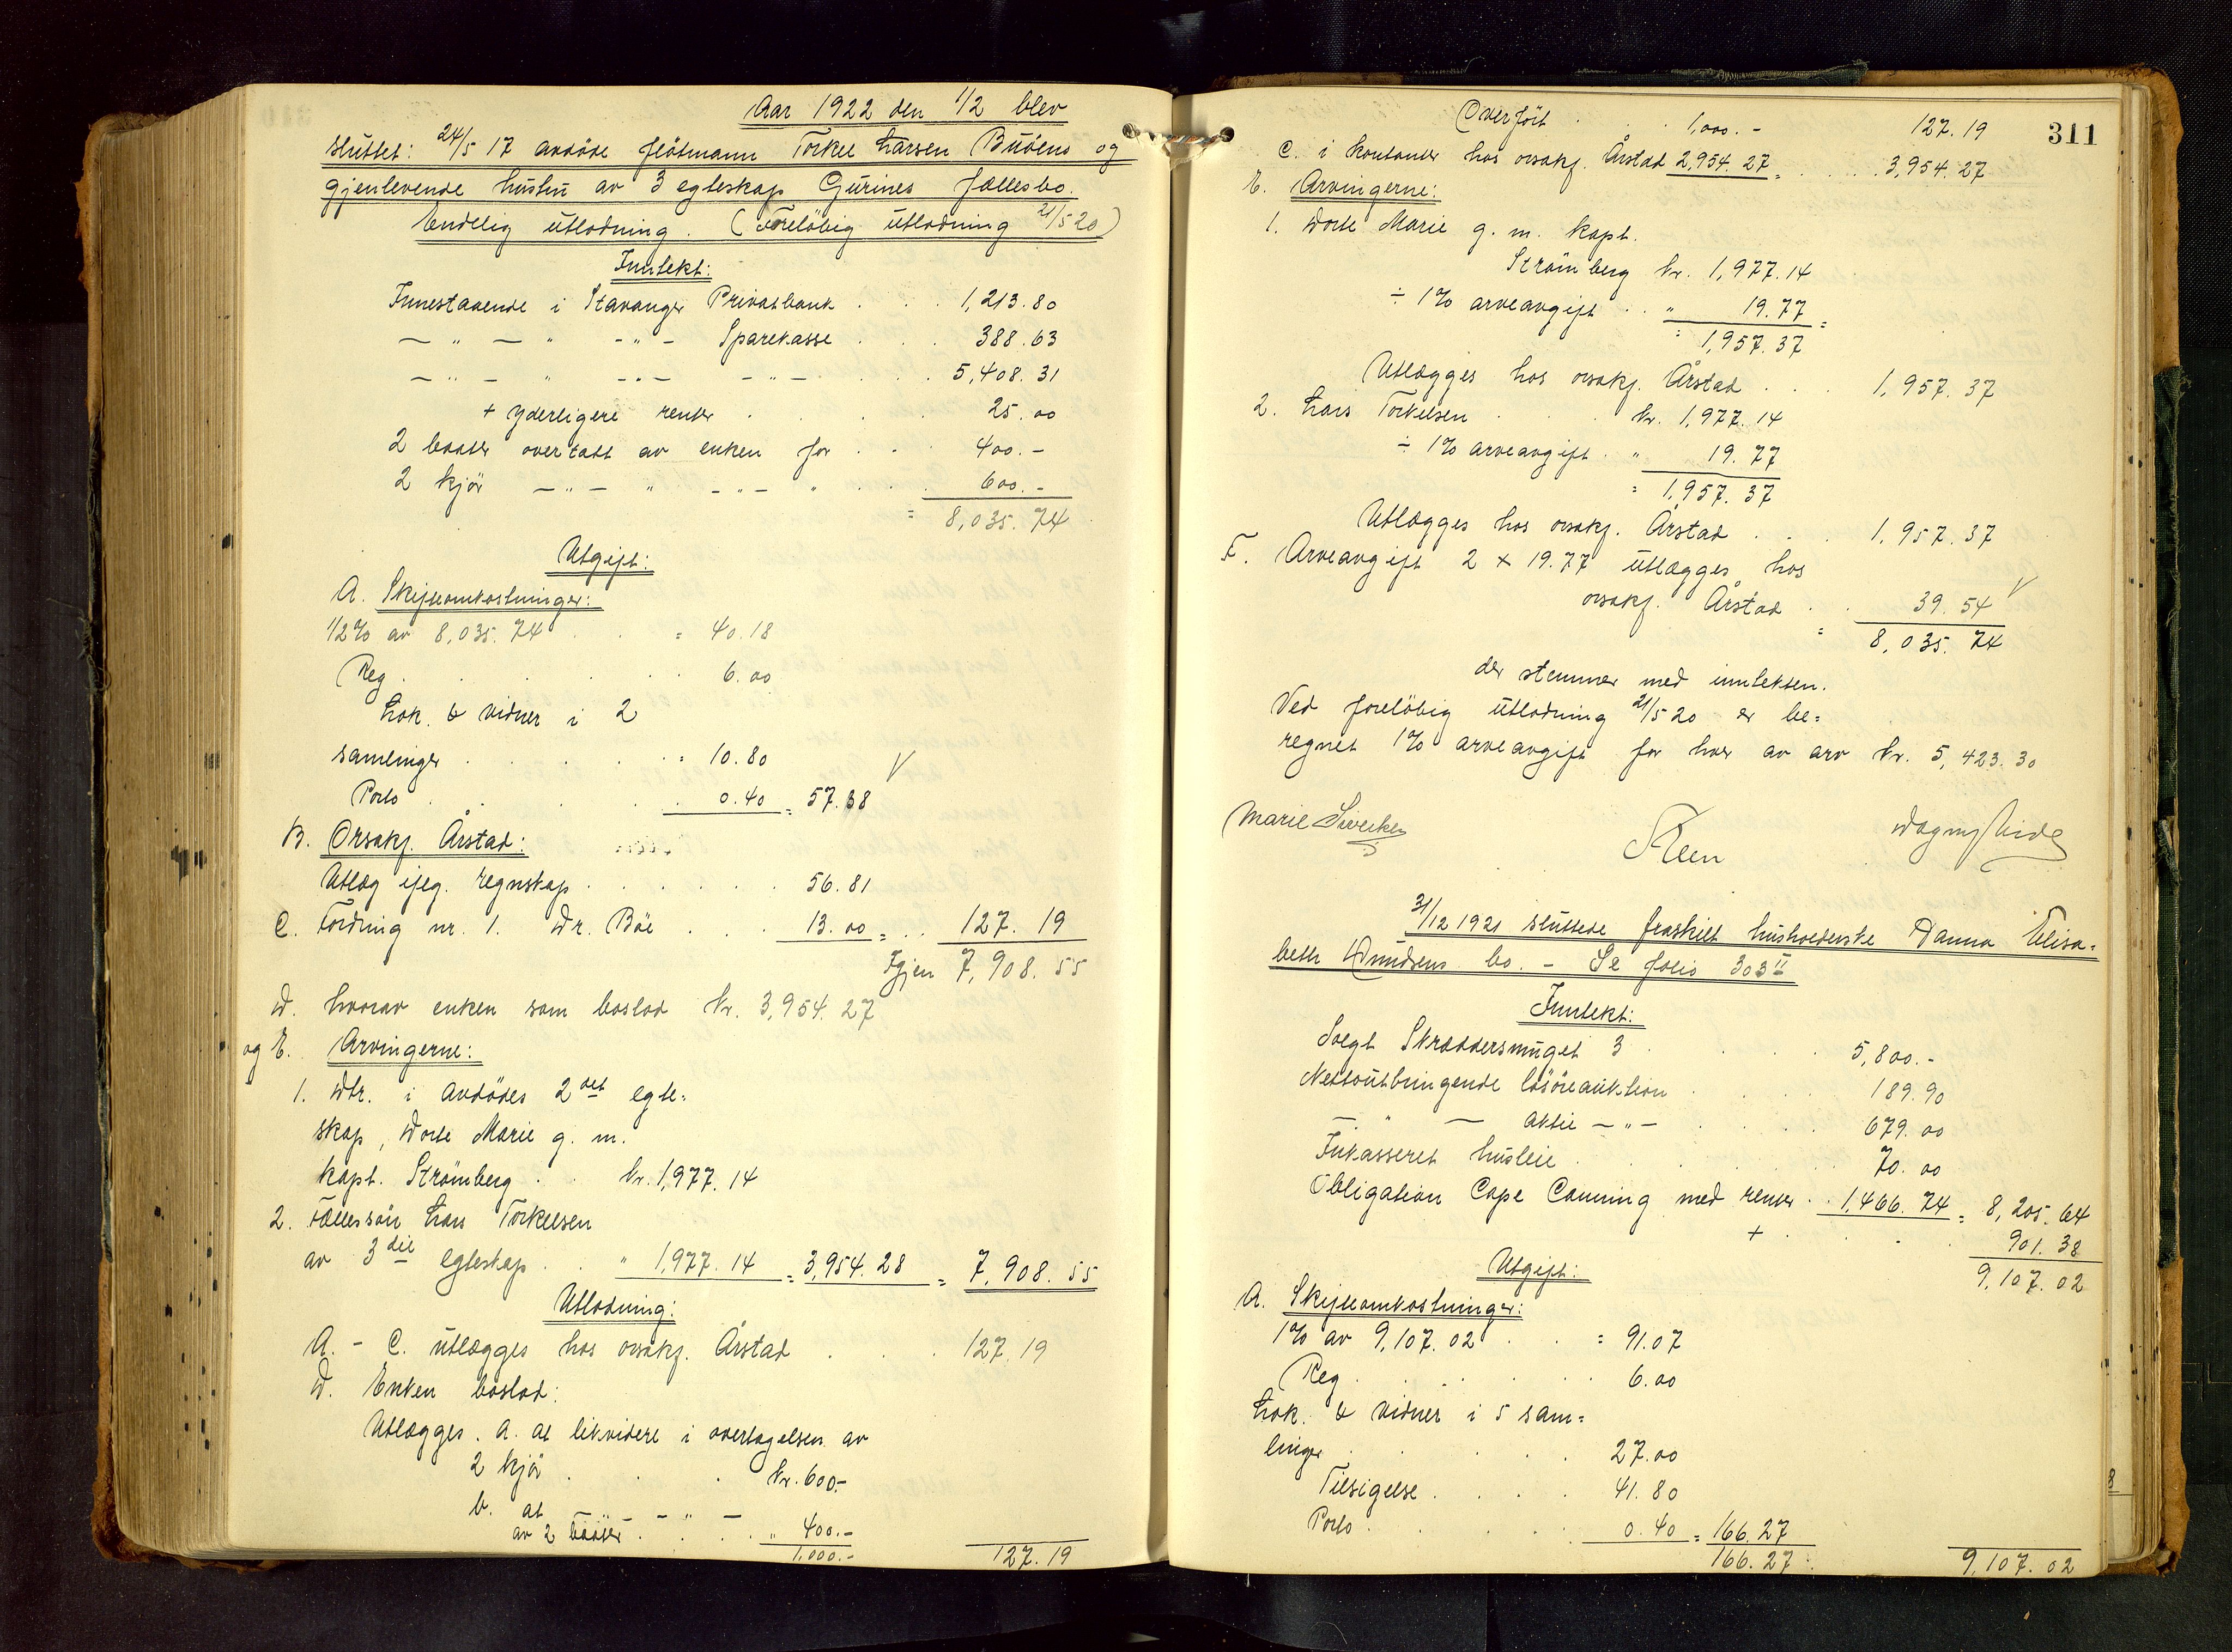 Aar 1922 den 1/2 blev
sluttet: 24/5 17 avdöde flötmann Torkel Larsen Buöens og
gjenlevende hustru av 3 egteskap Gurines fællesbo.
Endelig utlodning. (Foreløbig utlodning 21/5 20)
Inntekt:
Innestaaende i Stavanger Privatbank . . . 1,213.80
— " — " -"- Sparekasse . . . 388.63
— " — " -"- -"- . . . 5,408.31
+ yderligere renter . . . 25.00
2 baater overtatt av enken for . . . 400.-
2 kjör — " — " -"- " . . . 600.-
= 8,035.74
Utgift:
A. Skifteomkostninger:
1/2% av 8,035.74 . . = 40.18
Reg . . . . . 6.00
Lok. & vidner i 2
samlinger . . . . . = 10.80
Porto . . . . 0.40 = 57.38 V
B. Orsakf. Årstad:
Utlæg ifeg. regnskap . . . . . 56.81
C. Fordring nr. 1. Dr. Böe . . . 13.00 = . . 127.19
Igjen 7,908.55
D. hvorav enken som boslod kr. 3,954.27
og E. Arvingerne:
1. Dtr. i avdödes 2det egte=
skap, Dorte Marie g. m.
kapt. Strömberg . . kr. 1,977.14
2. Fællessön Lars Torkelsen
av 3die egteskap . . " 1,977.14 = 3,954.28 = 7,908.55
Utlodning:
A. - C. utlægges hos orsakf. Årstad . . . 127.19
D. Enken boslod:
Utlægges. a. at likvidere i overtagelsen av
2 kjör . . . kr. 600.-
b. at — " —
av 2 baater . . . " 400.-
1,000.- 127.19
311
Overfört . . . 1,000.- 127.19
c. i kontanter hos orsakf. Årstad 2,954.27 = . . . . 3,954.27
E. Arvingerne:
1. Dorte Marie g. m. kapt.
Strömberg kr. 1,977.14
÷ 1% arveavgift . . " 19.77 =
= 1,957.37
Utlægges hos orsakf. Årstad . . . 1,957.37
2. Lars Torkelsen . . . kr. 1,977.14
÷ 1% arveavgift . " 19.77
= 1,957.37
Utlægges hos orsakf. Årstad . . . 1,957.37
F. Arveavgift 2 x 19.77 utlægges hos
orsakf. Årstad . . 39.54 V
= 8,035.74
der stemmer med inntekten.
Ved foreløbig utlodning 21/5 20 er be=
regnet 1% arveavgift for hver av arv kr. 5,423.30
Marie Sivertsen Steen Dagny Eide
31/12 1921 sluttede fraskilt husholderske Danna Elisa=
beth Knudsens bo. - Se folio 303 II
Inntekt:
Solgt Skræddersmuget 3 . . . . 5,800.-
Nettoutbringende løsöreauktion . . . . 189.90
— " — aktie — " — . . . . 679.00
Inkasseret husleie . . . . 70.00
Obligation Cape Canning med renter . . 1,466.74 = 8,205.64
+ . . . . 901.38
9,107.02
Utgift:
A. Skifteomkostninger:
1% av 9,107.02 . . = 91.07
Reg . . . . . 6.00
Lok. & vidner i 5 sam=
linger . . . . 27.00
Tilsigelse . . . . 41.80
Porto . . . . 0.40 = 166.27
166.27 9,107.02